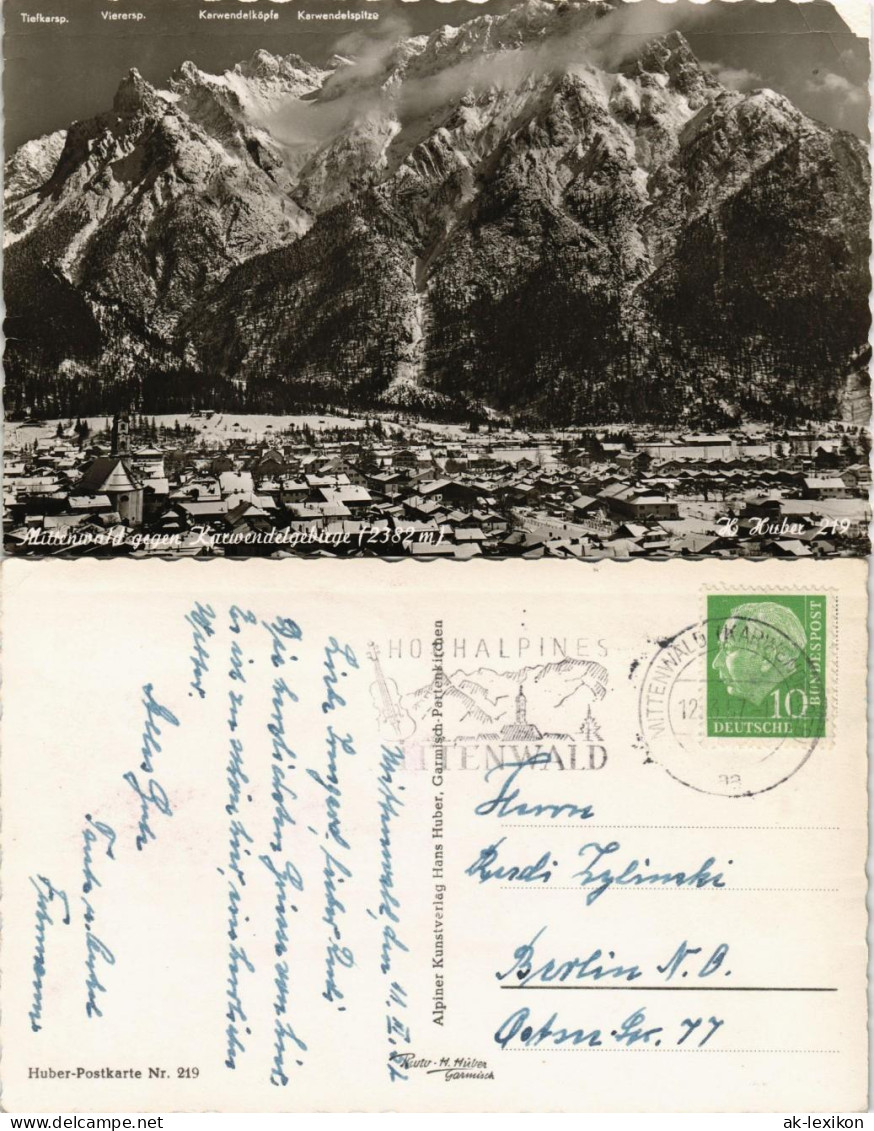 Tiefkarsp.
Vierersp.
Karwendelköpfe
Karwendelspitze
Mittenwald gegen Karwendelgebirge (2382 m)
H. Huber 219
HOCHALPINES
MITTENWALD
MITTENWALD (KARWEN
12
aa
10
DEUTSCHE
BUNDESPOST
Mittenwald, den 11. III. 57
Liebe Irmgard, lieber Rudi
Die herzlichsten Grüsse von hier.
Es ist zu schön hier, ein herrliches
Wetter.
Alles Gute
Tante u. Onkel
Herrn
Rudi Zylinski
Berlin N.O.
Str. 77
Alpiner Kunstverlag Hans Huber, Garmisch-Partenkirchen
Huber-Postkarte Nr. 219
Photo-H. Huber
Garmisch
ak-lexikon